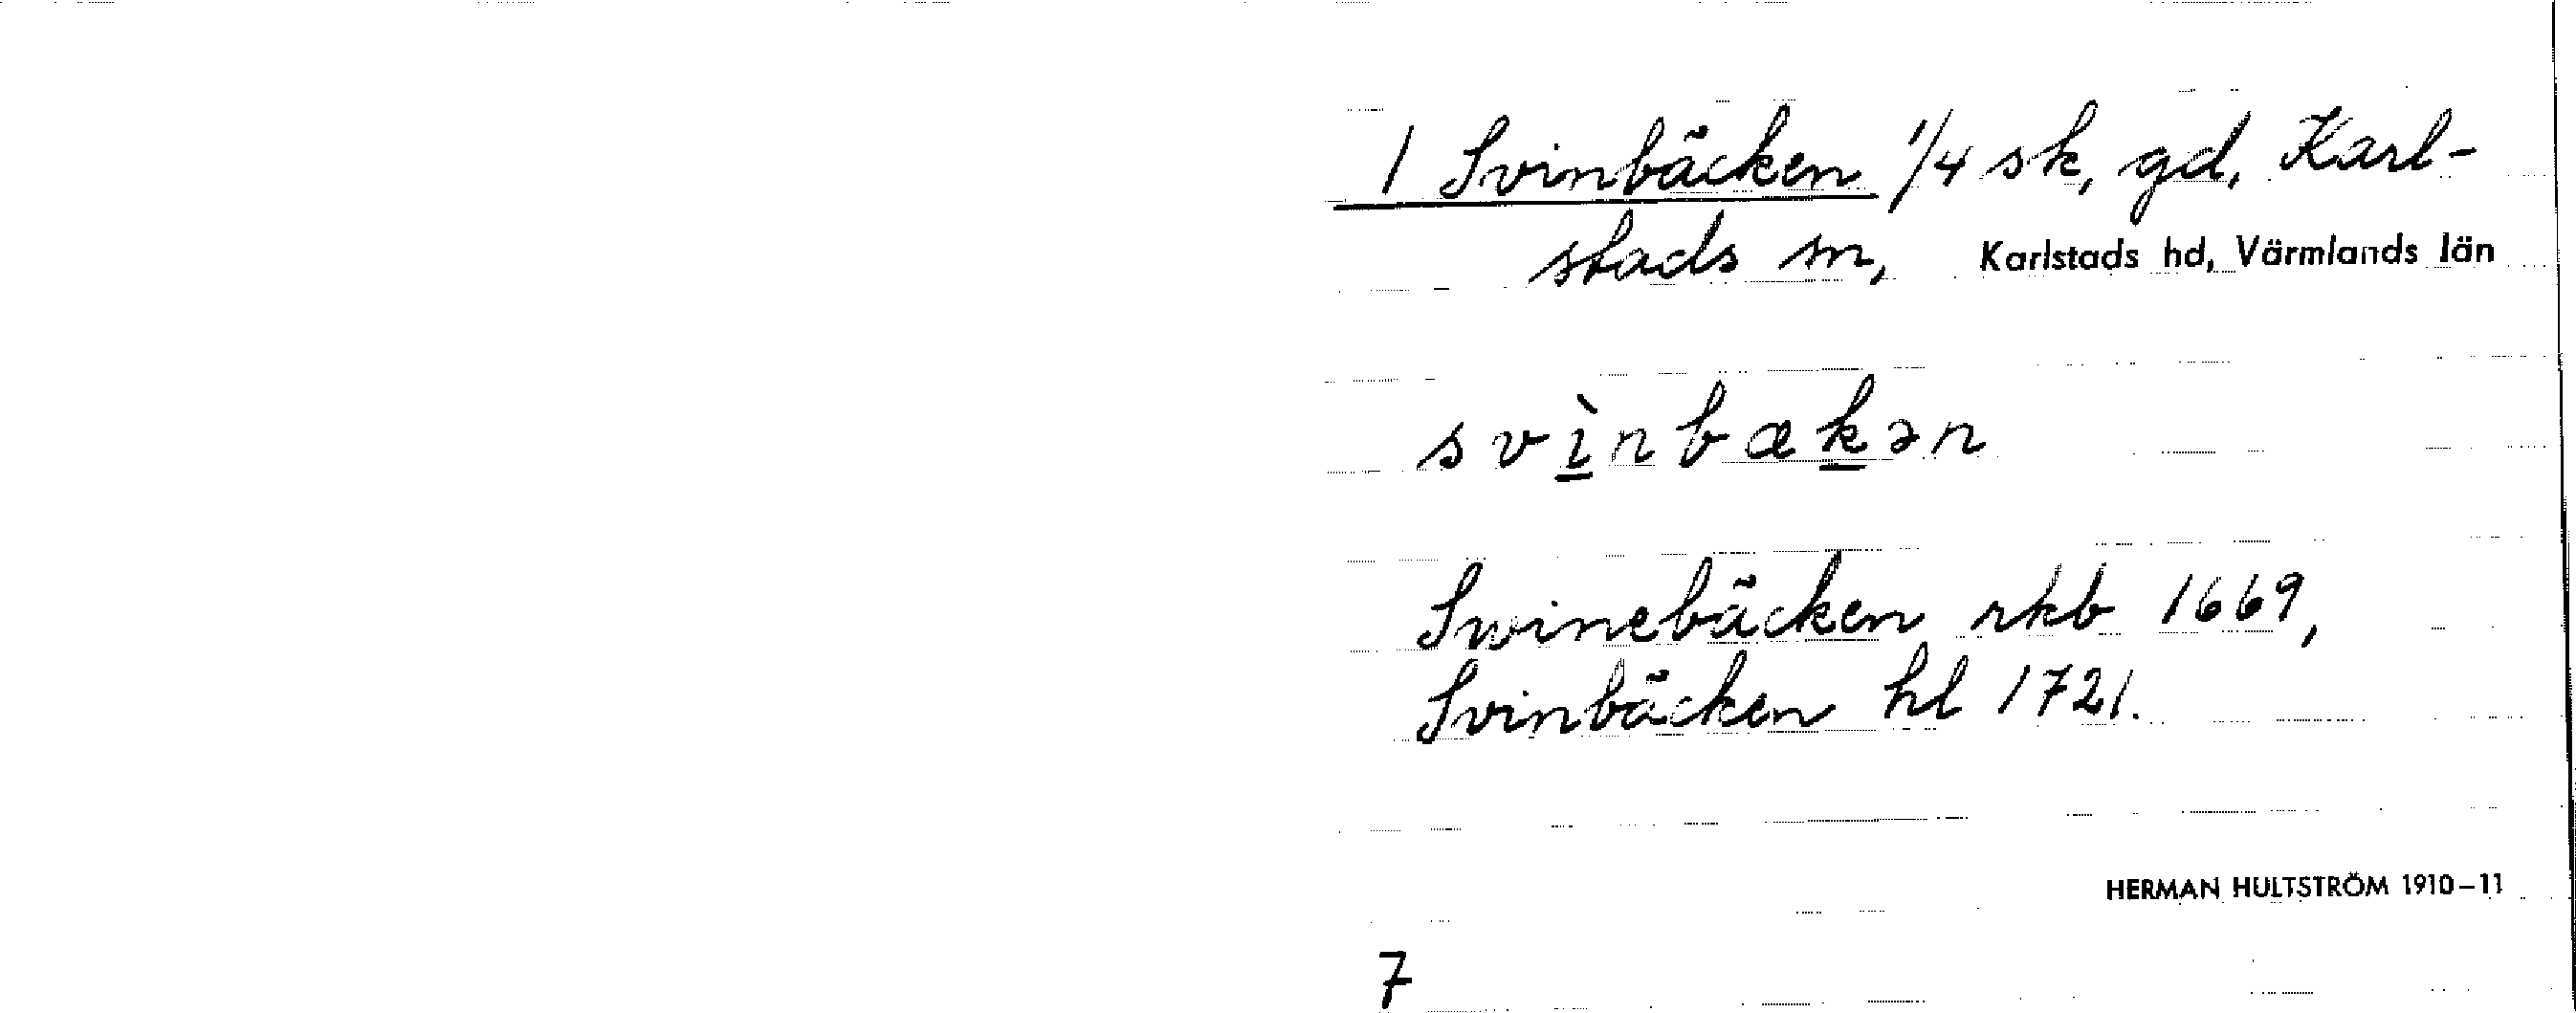 1 Svinbäcken 1/4 sk, gd, Karl-
stads sn, Karlstads hd, Värmlands län
svı̀nbækən
Swinebäcken rkb 1669,
Svinbäcken hl 1721.
HERMAN HULTSTRÖM 1910–11
7